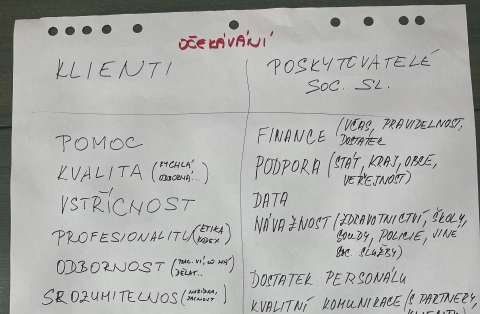 OČEKÁVÁNÍ
KLIENTI
POMOC
KVALITA (RYCHLÁ
ODBORNÁ...
VSTŘÍCNOST
PROFESIONALITU (ETIKA
KODEX
ODBORNOST (PRAC. VÍ, CO MÁ
DĚLAT...
SROZUMITELNOS (
JASNOST
POSKYTOVATELÉ
SOC. SL.
FINANCE (VČAS, PRAVIDELNOST,
DOSTATEK
PODPORA (STÁT, KRAJ, OBCE,
VEŘEJNOST)
DATA
NÁVAZNOST (ZDRAVOTNICTVÍ, ŠKOLY,
SOUDY, POLICIE, JINÉ
SOC. SLUŽBY)
DOSTATEK PERSONÁLU
KVALITNÍ KOMUNIKACE (S PARTNERY,
KLIENTY)